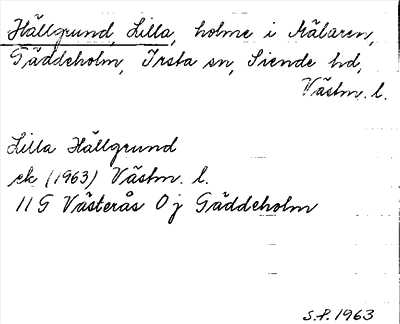 Hällgrund, Lilla, holme i Mälaren,
Gäddeholm, Irsta sn, Siende hd,
Västm. l.
Lilla Hällgrund
ek (1963) Västm. l.
11 G Västerås 0 j Gäddeholm
S.P. 1963